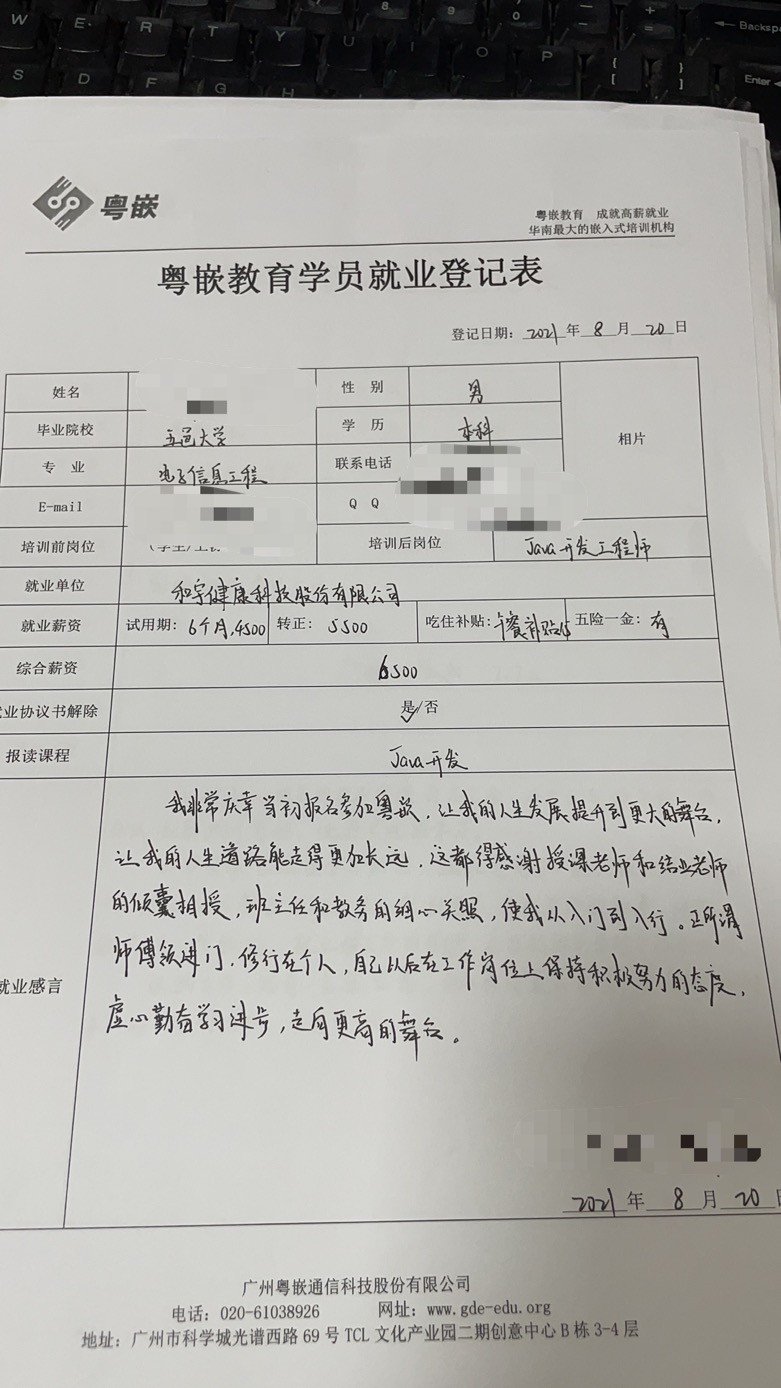 W E R T Y U I O P
S D F G H
Backsp
Enter
粤嵌
粤嵌教育 成就高薪就业
华南最大的嵌入式培训机构
粤嵌教育学员就业登记表
登记日期: 2021 年 8 月 20 日
姓名 性 别 男
毕业院校 五邑大学 学 历 本科
相片
专 业 电子信息工程 联系电话
E-mail Q Q
培训前岗位 培训后岗位 Java开发工程师
就业单位 和宇健康科技股份有限公司
就业薪资 试用期: 6个月,4500 转正: 5500 吃住补贴: 午餐补贴15 五险一金: 有
综合薪资 6500
业协议书解除 是/否
报读课程 Java开发
就业感言
我非常庆幸当初报名参加粤嵌,让我的人生发展提升到更大的舞台,
让我的人生道路能走得更加长远,这都得感谢授课老师和结业老师
的倾囊相授,班主任和教务的细心关照,使我从入门到入行。正所谓
师傅领进门,修行在个人,自己以后在工作岗位上保持积极努力的态度,
虚心勤奋学习进步,走向更高的舞台。
2021 年 8 月 20 日
广州粤嵌通信科技股份有限公司
电话: 020-61038926 网址: www.gde-edu.org
地址: 广州市科学城光谱西路 69 号 TCL 文化产业园二期创意中心 B 栋 3-4 层